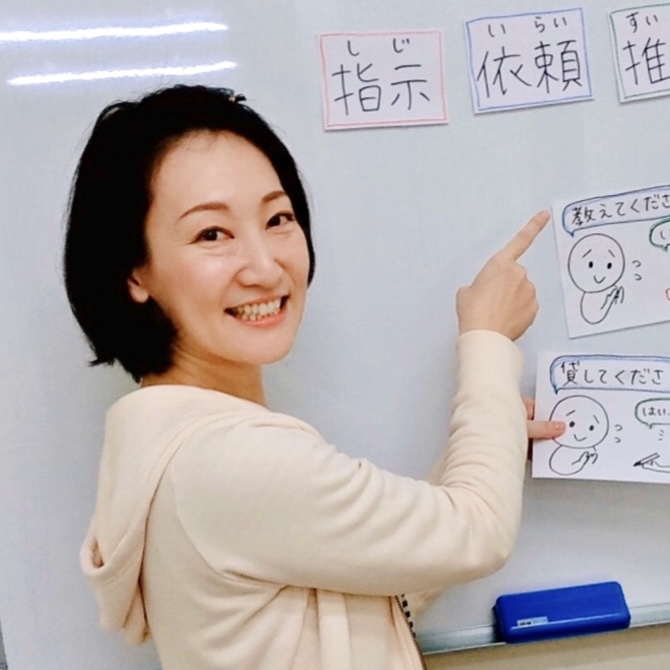 しじ
指示
いらい
依頼
すい
推
教えてくださ
貸してくださ
はい